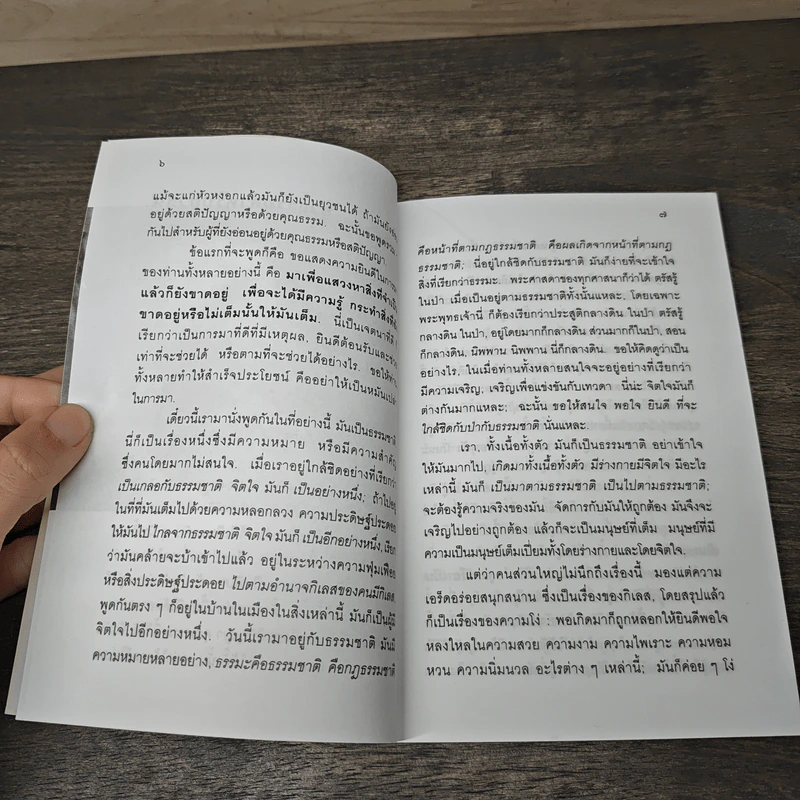 ๖
แม้จะแก่หัวหงอกแล้วมันก็ยังเป็นยุวชนได้ ถ้ามันยัง
อยู่ด้วยสติปัญญาหรือด้วยคุณธรรม. ฉะนั้นขอพูด
กันไปสำหรับผู้ที่ยังอ่อนอยู่ด้วยคุณธรรมหรือสติปัญญา.
ข้อแรกที่จะพูดก็คือ ขอแสดงความยินดีในการ
ของท่านทั้งหลายอย่างนี้ คือ มาเพื่อแสวงหาสิ่งที่
แล้วก็ยังขาดอยู่ เพื่อจะได้มีความรู้ กระทำสิ่งที่
ขาดอยู่หรือไม่เต็มนั้นให้มันเต็ม. นี่เป็นเจตนาที่ดี
เรียกว่าเป็นการมาที่ดีที่มีเหตุผล, ยินดีต้อนรับและ
เท่าที่จะช่วยได้ หรือตามที่จะช่วยได้อย่างไร. ขอให้
ทั้งหลายทำให้สำเร็จประโยชน์ คืออย่าให้เป็นหมัน
ในการมา.
เดี๋ยวนี้เรามานั่งพูดกันในที่อย่างนี้ มันเป็นธรรมชาติ
นี่ก็เป็นเรื่องหนึ่งซึ่งมีความหมาย หรือมีความสำคัญ
ซึ่งคนโดยมากไม่สนใจ. เมื่อเราอยู่ใกล้ชิดอย่างที่เรียกว่า
เป็นเกลอกับธรรมชาติ จิตใจ มันก็ เป็นอย่างหนึ่ง; ถ้าไป
ในที่ที่มันเต็มไปด้วยความหลอกลวง ความประดิษฐ์ประดอย
ให้มันไป ไกลจากธรรมชาติ จิตใจ มันก็ เป็นอีกอย่างหนึ่ง,
ว่ามันคล้ายจะบ้าเข้าไปแล้ว อยู่ในระหว่างความฟุ่มเฟือย
หรือสิ่งประดิษฐ์ประดอย ไปตามอำนาจกิเลสของคนมีกิเลส,
พูดกันตรง ๆ ก็อยู่ในบ้านในเมืองในสิ่งเหล่านี้ มันก็เป็นผู้มี
จิตใจไปอีกอย่างหนึ่ง. วันนี้เรามาอยู่กับธรรมชาติ มันมี
ความหมายหลายอย่าง, ธรรมะคือธรรมชาติ คือกฎธรรมชาติ
๗
คือหน้าที่ตามกฎธรรมชาติ คือผลเกิดจากหน้าที่ตามกฎ
ธรรมชาติ; นี่อยู่ใกล้ชิดกับธรรมชาติ มันก็ง่ายที่จะเข้าใจ
สิ่งที่เรียกว่าธรรมะ. พระศาสดาของทุกศาสนาก็ว่าได้ ตรัสรู้
ในป่า เมื่อเป็นอยู่ตามธรรมชาติทั้งนั้นแหละ, โดยเฉพาะ
พระพุทธเจ้านี้ ก็ต้องเรียกว่าประสูติกลางดิน ในป่า ตรัสรู้
กลางดิน ในป่า, อยู่โดยมากก็กลางดิน ส่วนมากก็ในป่า, สอน
ก็กลางดิน, นิพพาน นิพพาน นี่ก็กลางดิน. ขอให้คิดดูว่าเป็น
อย่างไร, ในเมื่อท่านทั้งหลายสนใจจะอยู่อย่างที่เรียกว่า
มีความเจริญ, เจริญเพื่อแข่งขันกับเทวดา นี่น่ะ จิตใจมันก็
ต่างกันมากแหละ; ฉะนั้น ขอให้สนใจ พอใจ ยินดี ที่จะ
ใกล้ชิดกับป่ากับธรรมชาติ นั่นแหละ.
เรา, ทั้งเนื้อทั้งตัว มันก็เป็นธรรมชาติ อย่าเข้าใจ
ให้มันมากไป, เกิดมาทั้งเนื้อทั้งตัว มีร่างกายมีจิตใจ มีอะไร
เหล่านี้ มันก็ เป็นมาตามธรรมชาติ เป็นไปตามธรรมชาติ;
จะต้องรู้ความจริงของมัน จัดการกับมันให้ถูกต้อง มันจึงจะ
เจริญไปอย่างถูกต้อง แล้วก็จะเป็นมนุษย์ที่เต็ม มนุษย์ที่มี
ความเป็นมนุษย์เต็มเปี่ยมทั้งโดยร่างกายและโดยจิตใจ.
แต่ว่าคนส่วนใหญ่ไม่นึกถึงเรื่องนี้ มองแต่ความ
เอร็ดอร่อยสนุกสนาน ซึ่งเป็นเรื่องของกิเลส, โดยสรุปแล้ว
ก็เป็นเรื่องของความโง่ : พอเกิดมาก็ถูกหลอกให้ยินดีพอใจ
หลงใหลในความสวย ความงาม ความไพเราะ ความหอม
หวน ความนิ่มนวล อะไรต่าง ๆ เหล่านี้; มันก็ค่อย ๆ โง่